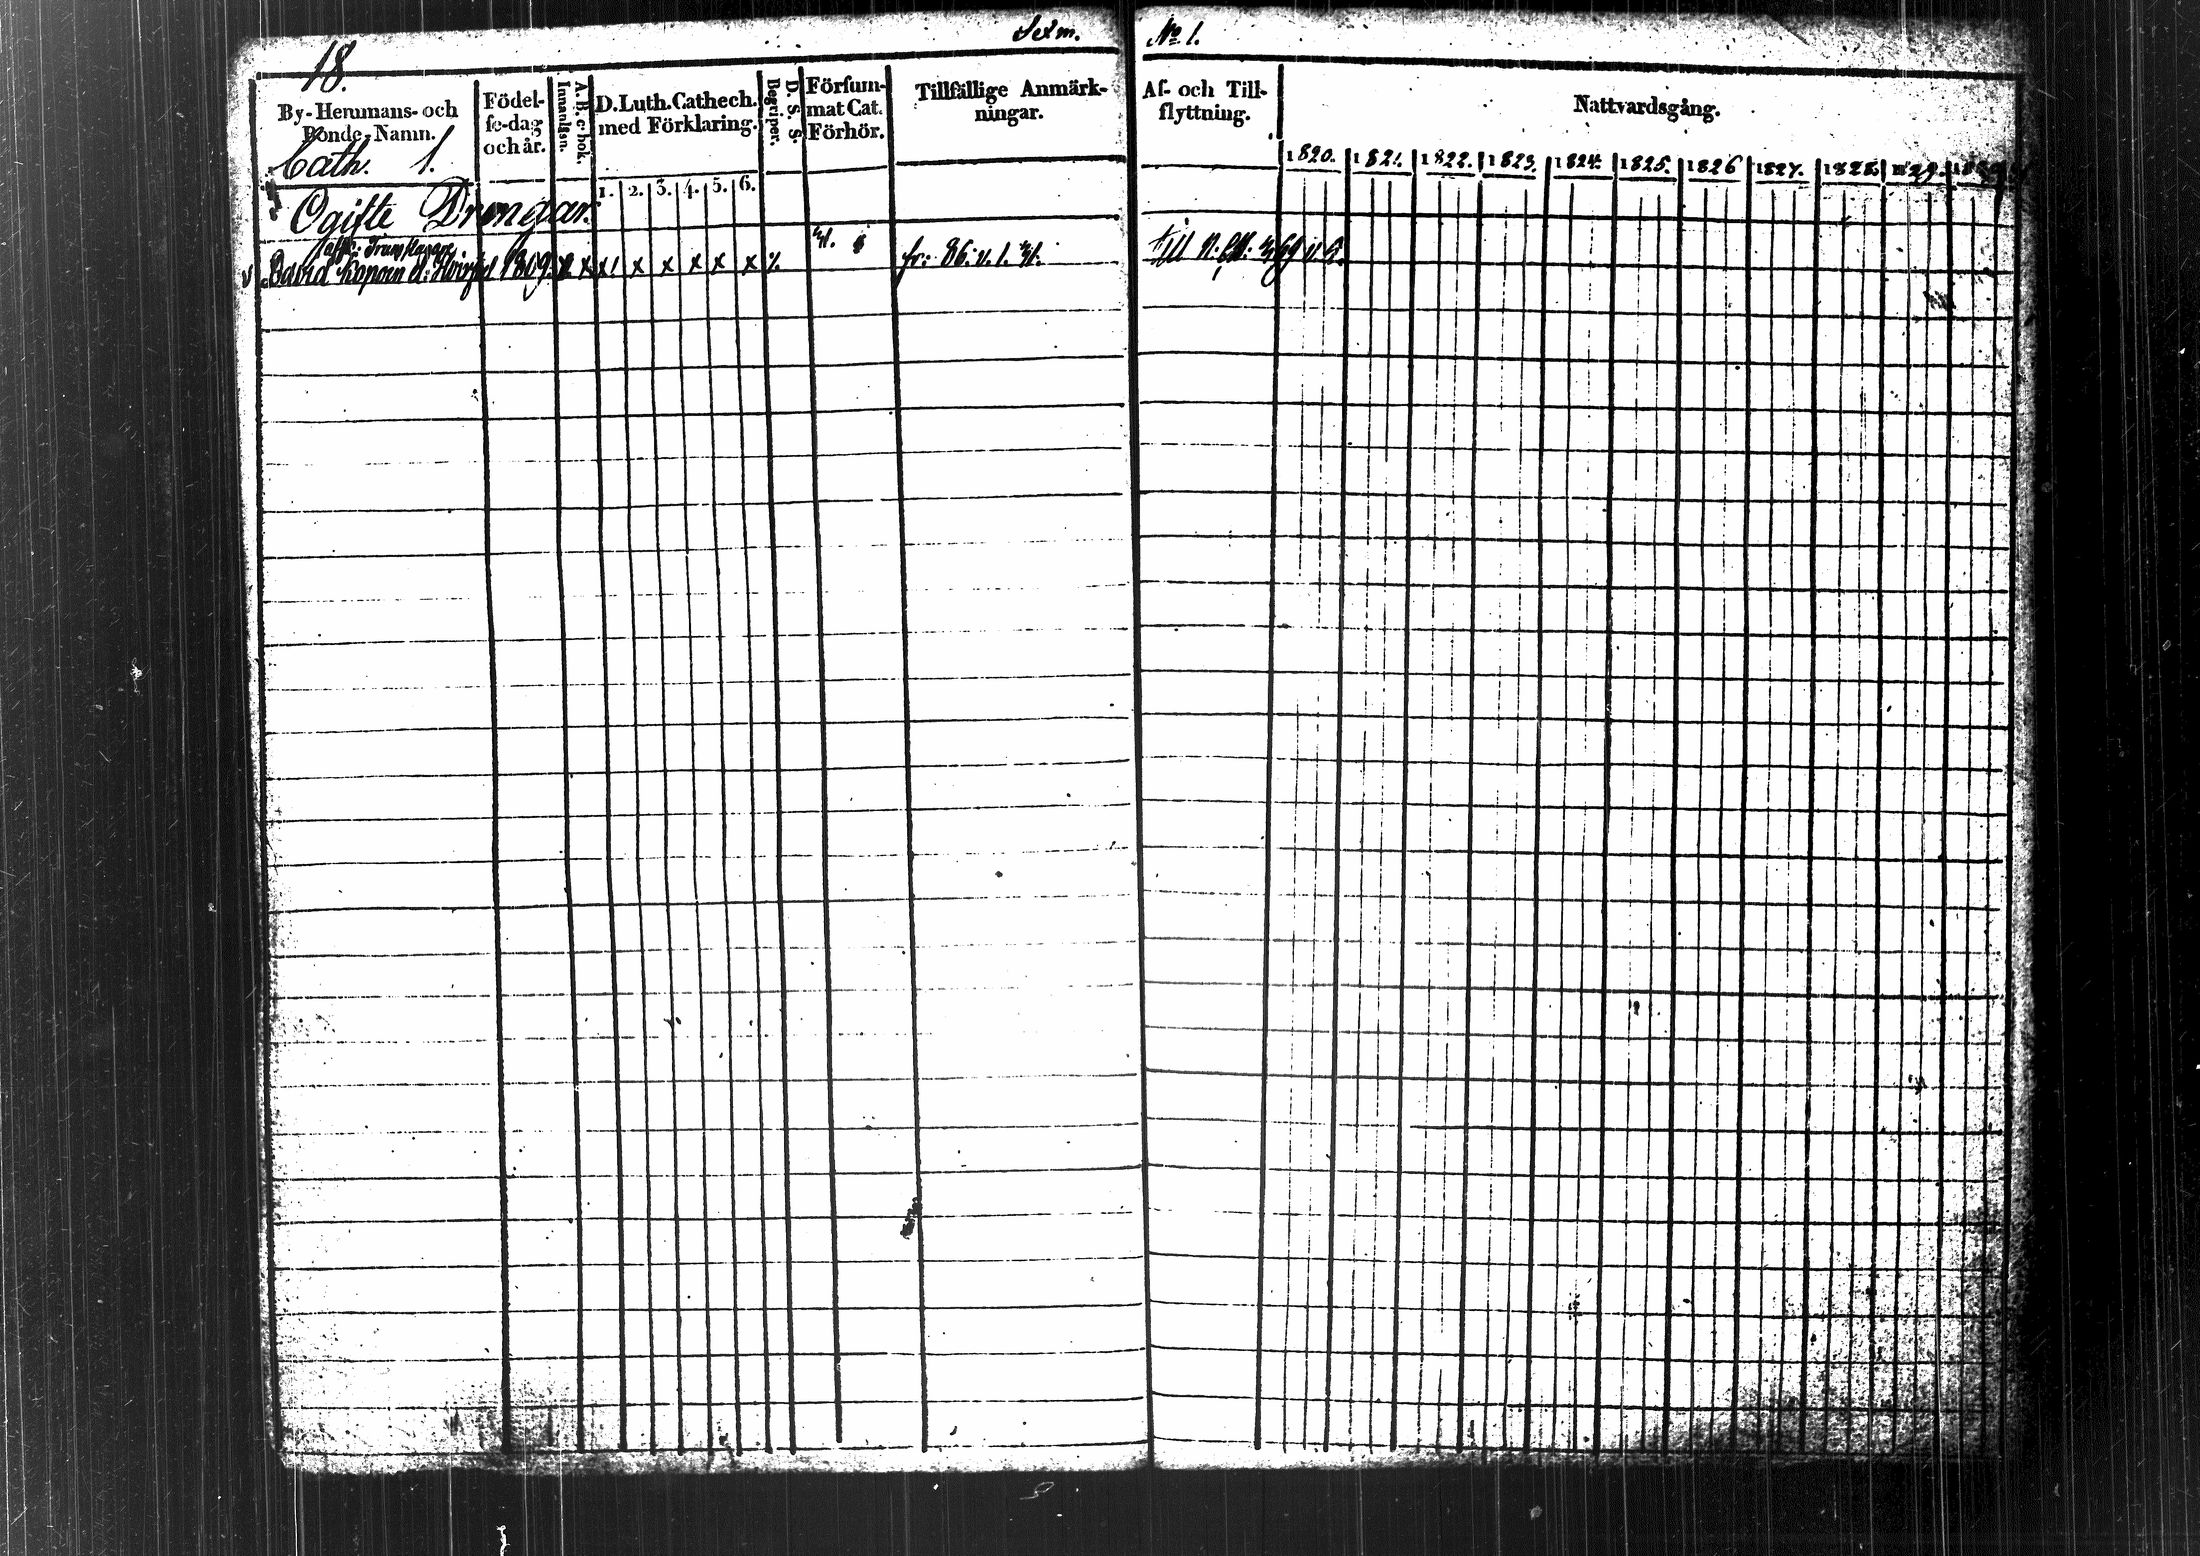 18.
Sexm. No 1.
By- Hemmans- och Bonde-Namn.
Födelse-dag och år.
A. B. c-bok.
Innanläsn.
D. Luth. Cathech. med Förklaring.
Begriper.
D. S. S.
Försummat Cat. Förhör.
Tillfällige Anmärkningar.
Af- och Tillflyttning.
Nattvardsgång.
Cath. 1.
1. 2. 3. 4. 5. 6.
1820. 1821. 1822. 1823. 1824. 1825. 1826 1827. 1828. 1829.
Ogifte Drengar.
Trumslagare
David 1809. x x x x x x x fr: 86. v. 1. 31.
till